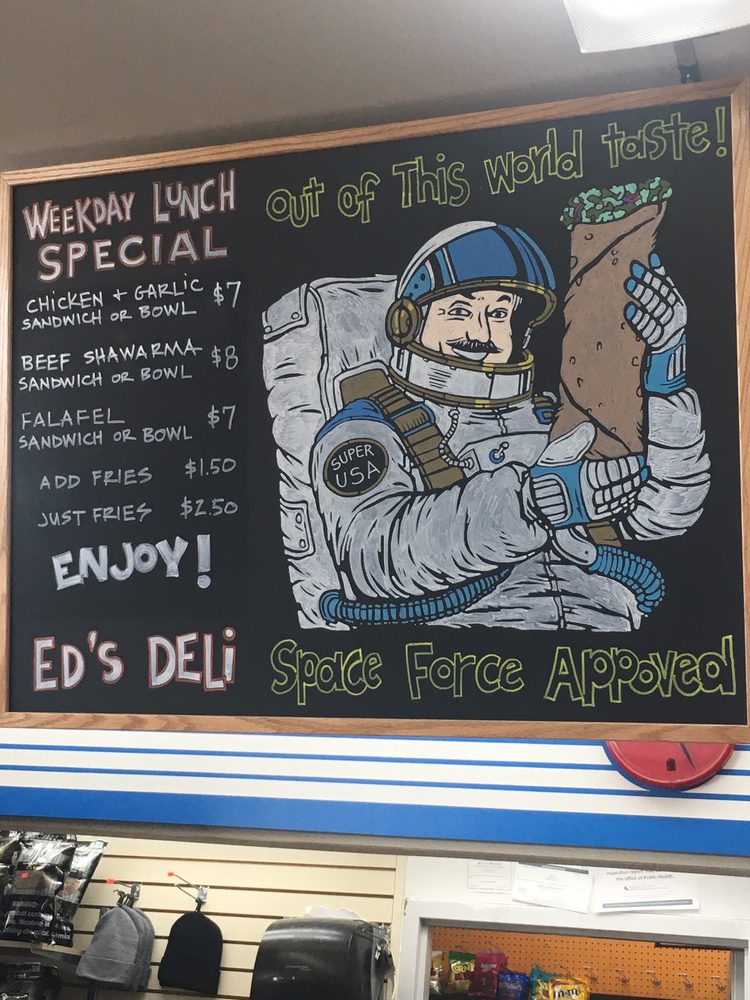 WEEKDAY LUNCH
SPECIAL
CHICKEN + GARLIC $7
SANDWICH OR BOWL
BEEF SHAWARMA $8
SANDWICH OR BOWL
FALAFEL $7
SANDWICH OR BOWL
ADD FRIES $1.50
JUST FRIES $2.50
ENJOY!
ED'S DELi
Out of This world taste!
SUPER
USA
Space Force Appoved
WARNING:
inspection report may
the office of Public Health